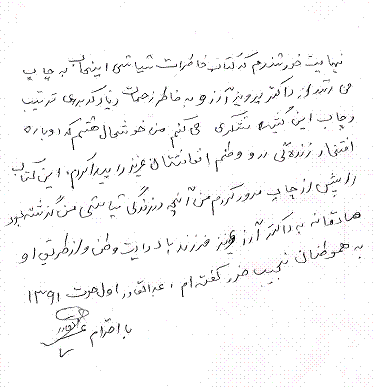 نهایت خورسندم که کتاب خاطرات سیاسی اینجانب به چاپ
می رسد از داکتر پرویز آرزو به خاطر زحمات زیاد که برای ترتیب
و چاپ این کتاب تشکری می کنم من خوشحال هستم که دوباره
افتخار زنده گی در وطنم افغانستان عزیز را پیدا کردم، این کتاب
را پیش از چاپ مرور کردم من آنچه در زندگی سیاسی من گذشته بود
صادقانه به داکتر آرزو عزیز فرزند با درایت وطن و از طریق او
به هموطنان نجیب خود گفته ام، عبدالقادر اول حوت ۱۳۹۱
با احترام